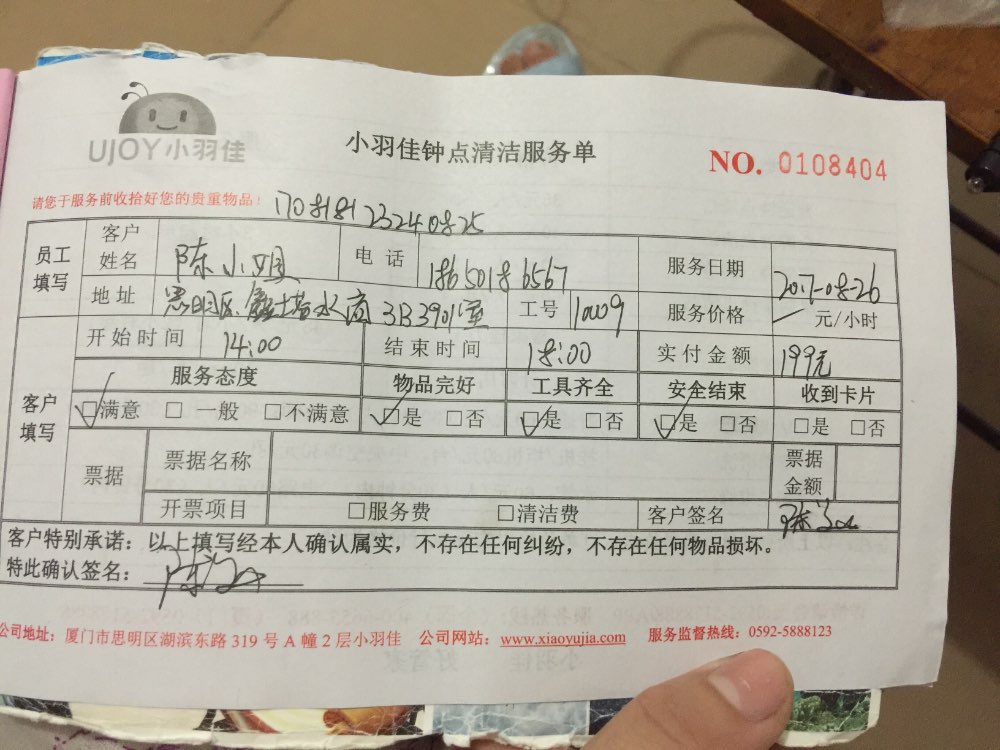 UJOY小羽佳
小羽佳钟点清洁服务单
NO. 0108404
请您于服务前收拾好您的贵重物品！
员工填写 客户姓名 陈小姐 电话 18650186567 服务日期 2017-08-26
地址 思明区 水岸 3B3901室 工号 10009 服务价格 元/小时
开始时间 14:00 结束时间 18:00 实付金额 199元
客户填写 服务态度 物品完好 工具齐全 安全结束 收到卡片
□满意 □一般 □不满意 □是 □否 □是 □否 □是 □否 □是 □否
票据 票据名称 票据金额
开票项目 □服务费 □清洁费 客户签名
客户特别承诺：以上填写经本人确认属实，不存在任何纠纷，不存在任何物品损坏。
特此确认签名：
公司地址：厦门市思明区湖滨东路 319 号 A 幢 2 层小羽佳 公司网站：www.xiaoyujia.com 服务监督热线：0592-5888123